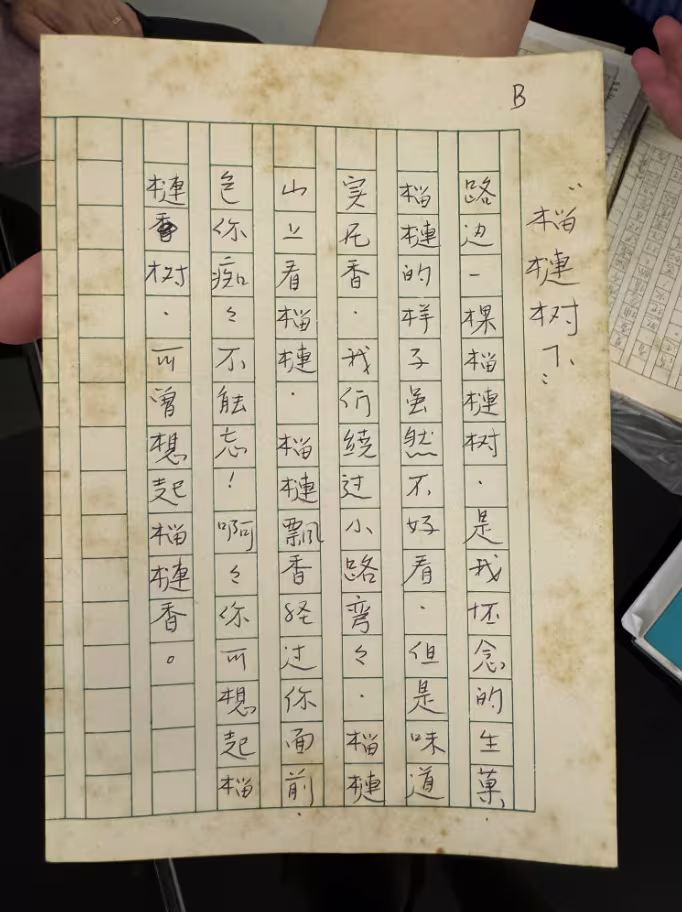 B
"榴槤树下"
路边一棵榴槤树.是我怀念的生菓、
榴槤的样子虽然不好看.但是味道
实在香.我们绕过小路弯々.榴槤
山上看榴槤.榴槤飘香经过你面前
包你痴々不能忘!啊々你可想起榴
槤香树.可曾想起榴槤香。